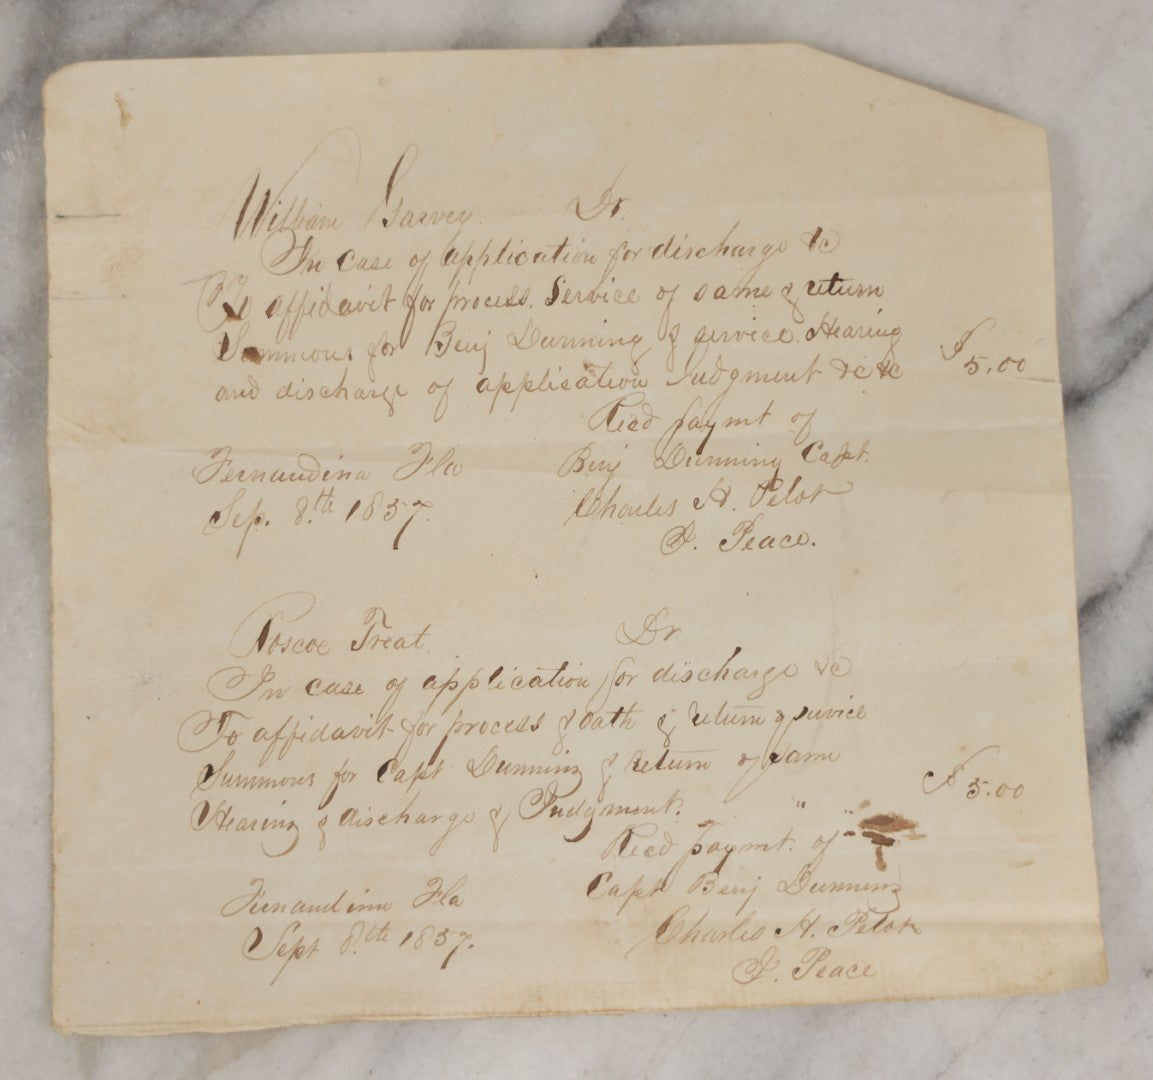 William Garvey. Dr.
In case of application for discharge &c
To affidavit for process. Service of same & return
Summons for Benj Dunning & service. Hearing
and discharge of application Judgment &c &c $5.00
Recd paymt of
Benj Dunning Capt.
Charles H. Pelot
J. Peace.
Fernandina Fla
Sep. 8.th 1857.
Roscoe Treat. Dr
In case of application for discharge &c
To affidavit for process & oath & return & service
Summons for Capt Dunning & return of same
Hearing & discharge & Judgment. $5.00
Recd paymt. of
Capt Benj Dunning
Charles H. Pelot
J. Peace
Fernandina Fla
Sept 8.th 1857.